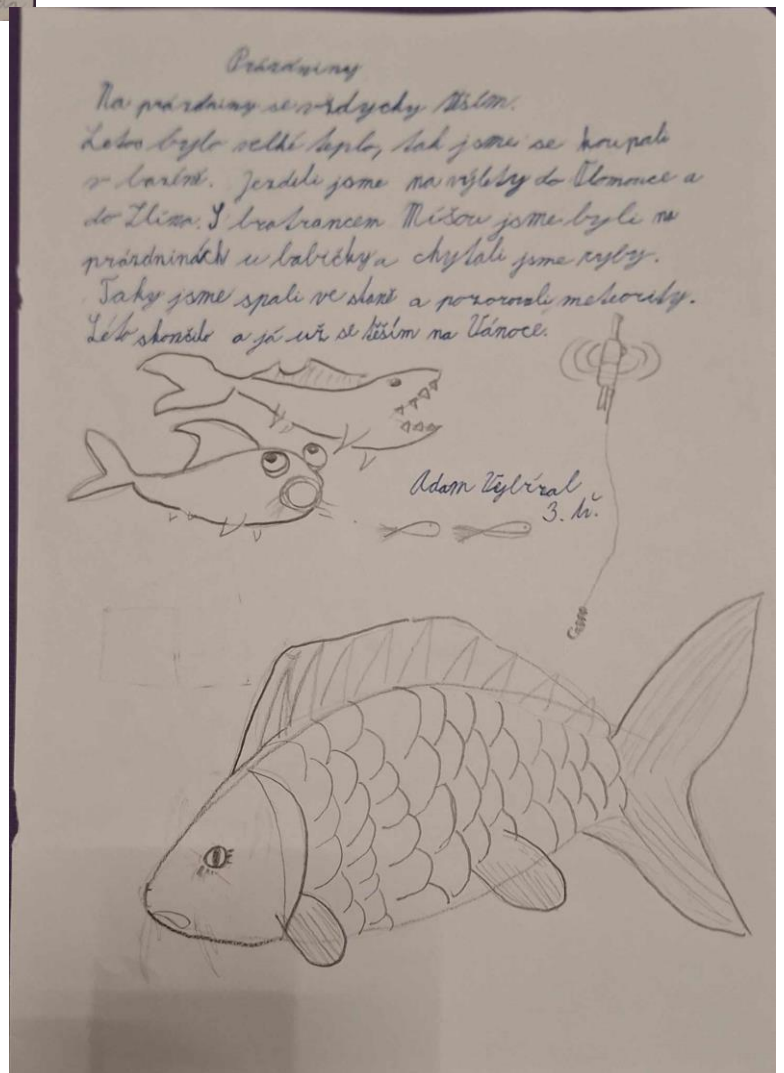 Prázdniny
Na prázdniny se vždycky těším.
Letos bylo velké teplo, tak jsme se koupali
v bazéně. Jezdili jsme na výlety do Olomouce a
do Zlína. S bratrancem Míšou jsme byli na
prázdninách u babičky a chytali jsme ryby.
Taky jsme spali ve staně a pozorovali meteority.
Léto skončilo a já už se těším na Vánoce.
Adam Vybíral
3. tř.